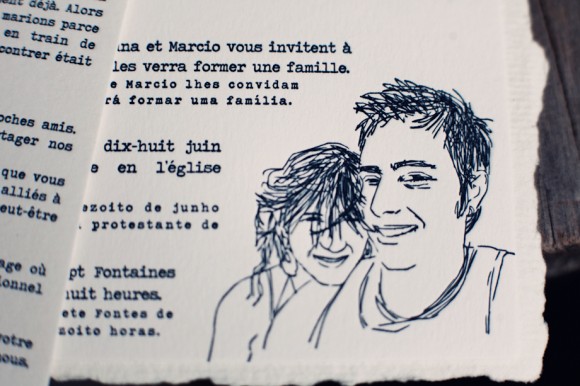 déjà. Alors
marions parce
en train de
contrer était
oches amis.
tager nos
que vous
alliés à
eut-être
age où
ionnel
votre
nous.
ana et Marcio vous invitent à
les verra former une famille.
e Marcio lhes convidam
rá formar uma família.
dix-huit juin
e en l'église
ezoito de junho
protestante de
pt Fontaines
huit heures.
ete Fontes de
zoito horas.